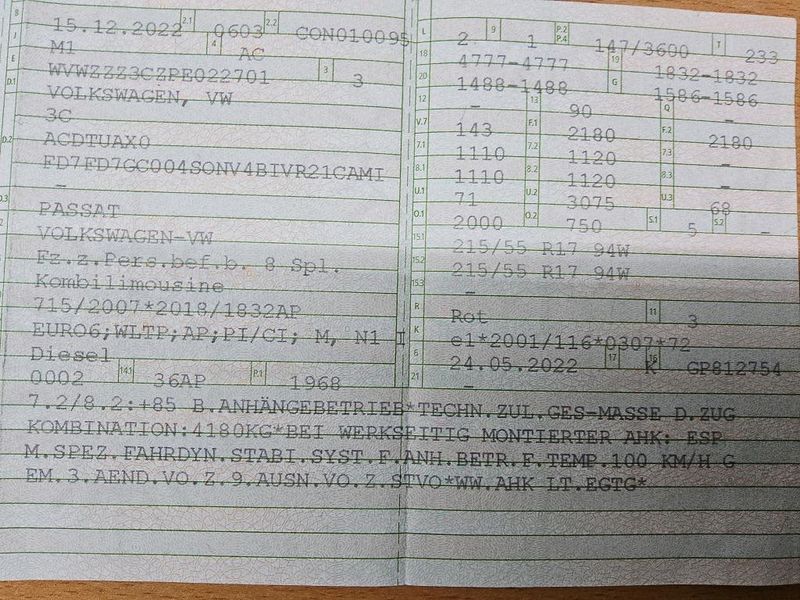 B 15.12.2022 2.1 0603 2.2 CON010095
J M1 4 AC
E WVWZZZ3CZPE022701 3 3
D.1 VOLKSWAGEN, VW
3C
D.2 ACDTUAX0
FD7FD7GC004SONV4BIVR21CAMI
-
D.3 PASSAT
2 VOLKSWAGEN-VW
Fz.z.Pers.bef.b. 8 Spl.
Kombilimousine
715/2007*2018/1832AP
EURO6;WLTP;AP;PI/CI; M, N1 I
Diesel
0002 14.1 36AP P.1 1968
L 2 9 1 P.2 P.4 147/3600 T 233
18 4777-4777 19 1832-1832
20 1488-1488 G 1586-1586
12 - 13 90 Q -
V.7 143 F.1 2180 F.2 2180
7.1 1110 7.2 1120 7.3 -
8.1 1110 8.2 1120 8.3 -
U.1 71 U.2 3075 U.3 68
O.1 2000 O.2 750 S.1 5 S.2 -
15.1 215/55 R17 94W
15.2 215/55 R17 94W
15.3 -
R Rot 11 3
K e1*2001/116*0307*72
6 24.05.2022 17 K 16 GP812754
21 -
7.2/8.2:+85 B.ANHÄNGEBETRIEB*TECHN.ZUL.GES-MASSE D.ZUG
KOMBINATION:4180KG*BEI WERKSEITIG MONTIERTER AHK: ESP
M.SPEZ.FAHRDYN.STABI.SYST.F.ANH.BETR.F.TEMP.100 KM/H G
EM.3.AEND.VO.Z.9.AUSN.VO.Z.STVO*WW.AHK LT.EGTG*